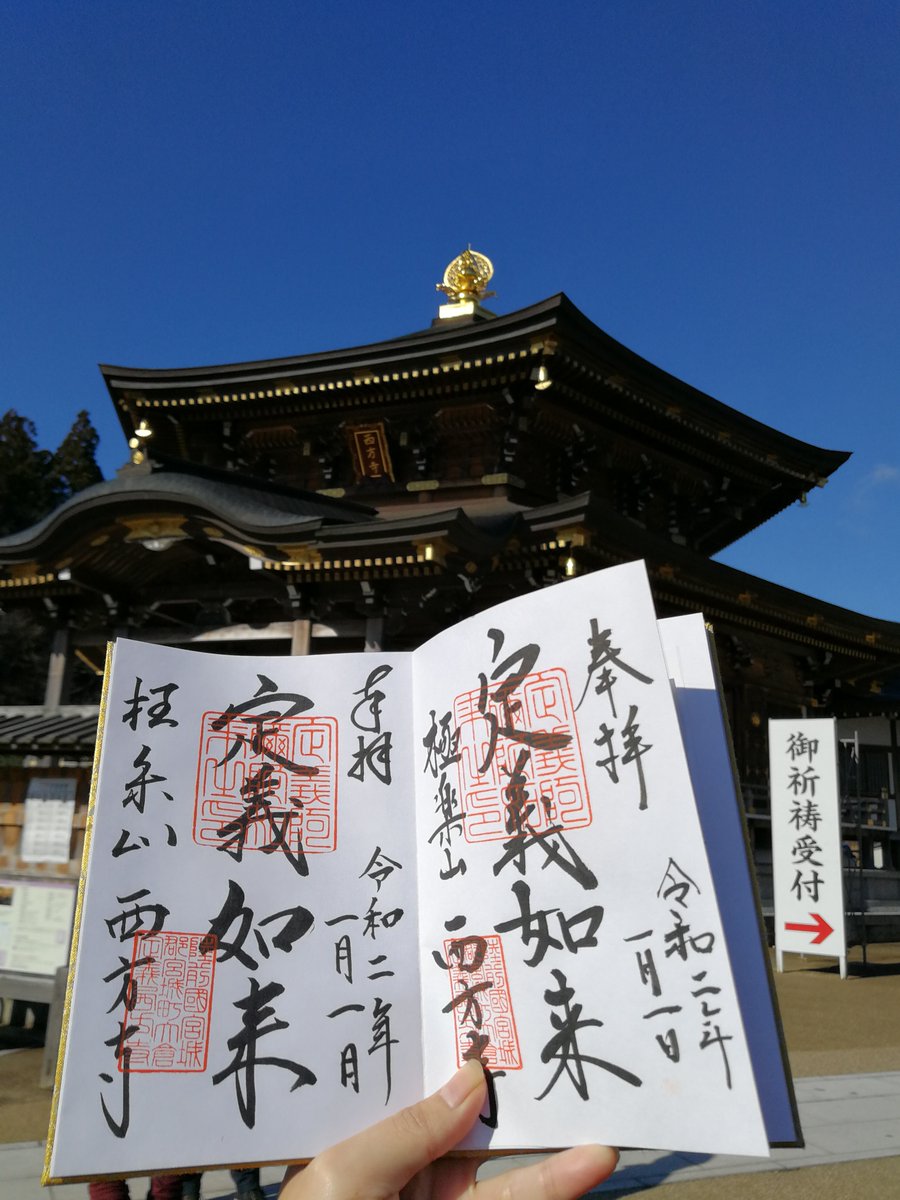 西方寺
奉拝
令和二年
一月一日
定義如来
極楽山
西方寺
奉拝
令和二年
一月一日
定義如来
極楽山 西方寺
御祈祷受付